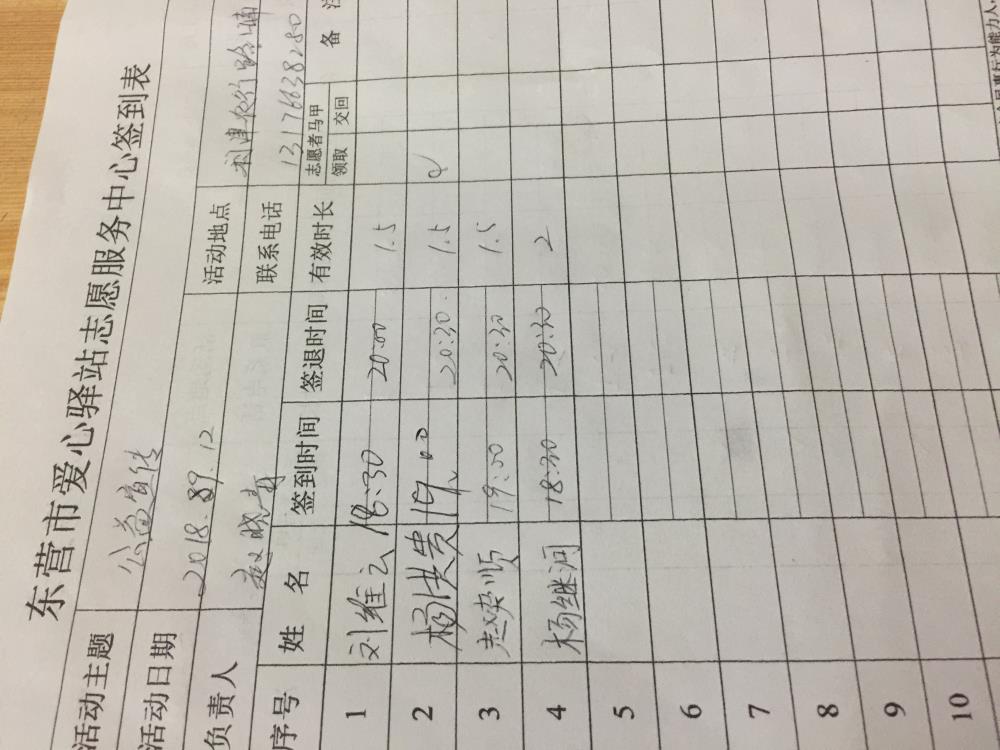 东营市爱心驿站志愿服务中心签到表
活动主题 公益宣传
活动日期 2018.89.12 活动地点 利津农行路南
负责人 赵晓寿 联系电话 13176638280
序号 姓 名 签到时间 签退时间 有效时长 志愿者马甲 领取 交回 备 注
1 刘维云 18:30 20:00 1.5
2 杨洪贵 19:00 20:30 1.5
3 赵奕顺 19:00 20:30 1.5
4 杨继润 18:30 20:30 2
5
6
7
8
9
10